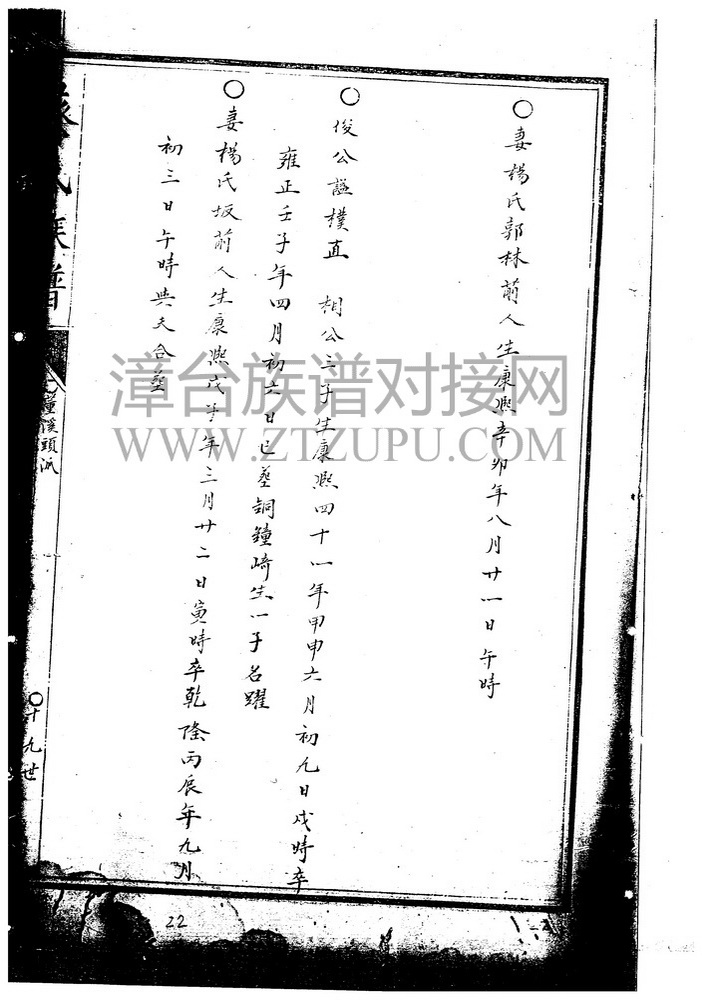 ○妻楊氏郭林前人生康熙辛卯年八月廿一日午時
○俊公諡樸直 相公三子生康熙四十一年甲申六月初九日戌時卒
雍正壬子年四月初六日巳葬銅鐘崎生一子名躍
○妻楊氏坂前人生康熙戊子年三月廿二日寅時卒乾隆丙辰年九月
初三日午時與夫合葬
氏族譜
鐘溪頭派
○十九世
22
漳台族谱对接网
WWW.ZTZUPU.COM